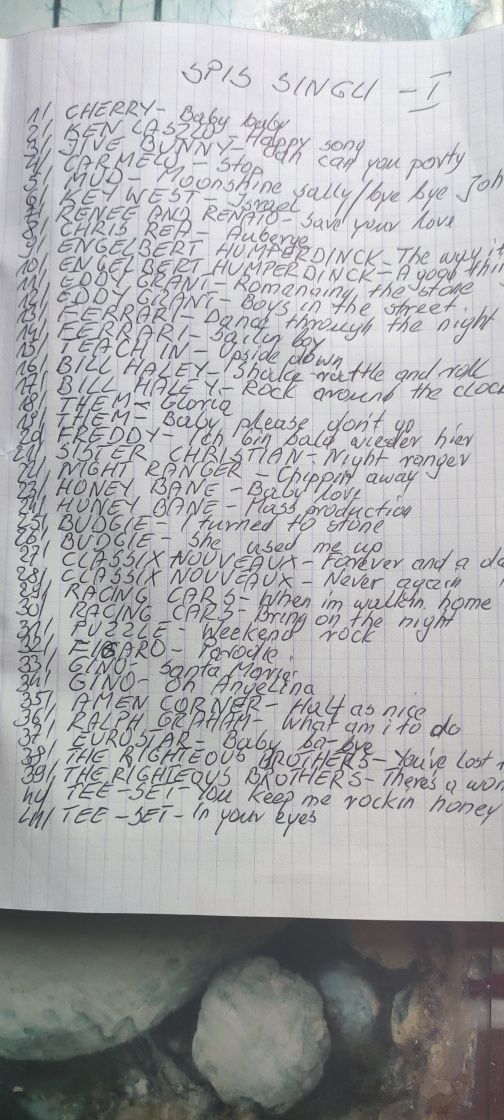 SPIS SINGLI - I
1/ CHERRY - Baby baby
2/ KEN LASZLO - Happy song
3/ JIVE BUNNY - Can can you party
4/ CARMEN - Stop
5/ MUD - Moonshine sally/bye bye Joh
6/ KEY WEST - Israel
7/ RENEE AND RENATO - Save your love
8/ CHRIS REA - Auberge
9/ ENGELBERT HUMPERDINCK - The way it
10/ ENGELBERT HUMPERDINCK - A good thin
11/ EDDY GRANT - Romancing the stone
12/ EDDY GRANT - Boys in the street
13/ FERRARI - Dance through the night
14/ FERRARI - Sailin boy
15/ TEACH IN - Upside down
16/ BILL HALEY - Shake rattle and roll
17/ BILL HALEY - Rock around the cloc
18/ THEM - Gloria
19/ THEM - Baby please don't go
20/ FREDDY - Ich bin bald wieder hier
21/ SISTER CHRISTIAN - Night ranger
22/ NIGHT RANGER - Chippin away
23/ HONEY BANE - Baby love
24/ HONEY BANE - Mass production
25/ BUDGIE - I turned to stone
26/ BUDGIE - She used me up
27/ CLASSIX NOUVEAUX - Forever and a da
28/ CLASSIX NOUVEAUX - Never again
29/ RACING CARS - When im walkin home
30/ RACING CARS - Bring on the night
31/ PUZZLE - Weekend rock
32/ FIGARO - Parodie
33/ GINO - Santa Maria
34/ GINO - Oh Angelina
35/ AMEN CORNER - Half as nice
36/ RALPH GRAHAM - What am i to do
37/ EUROSTAR - Baby ba-bye
38/ THE RIGHTEOUS BROTHERS - You've lost
39/ THE RIGHTEOUS BROTHERS - There's a wom
40/ TEE-SET - You keep me rockin honey
41/ TEE-SET - In your eyes